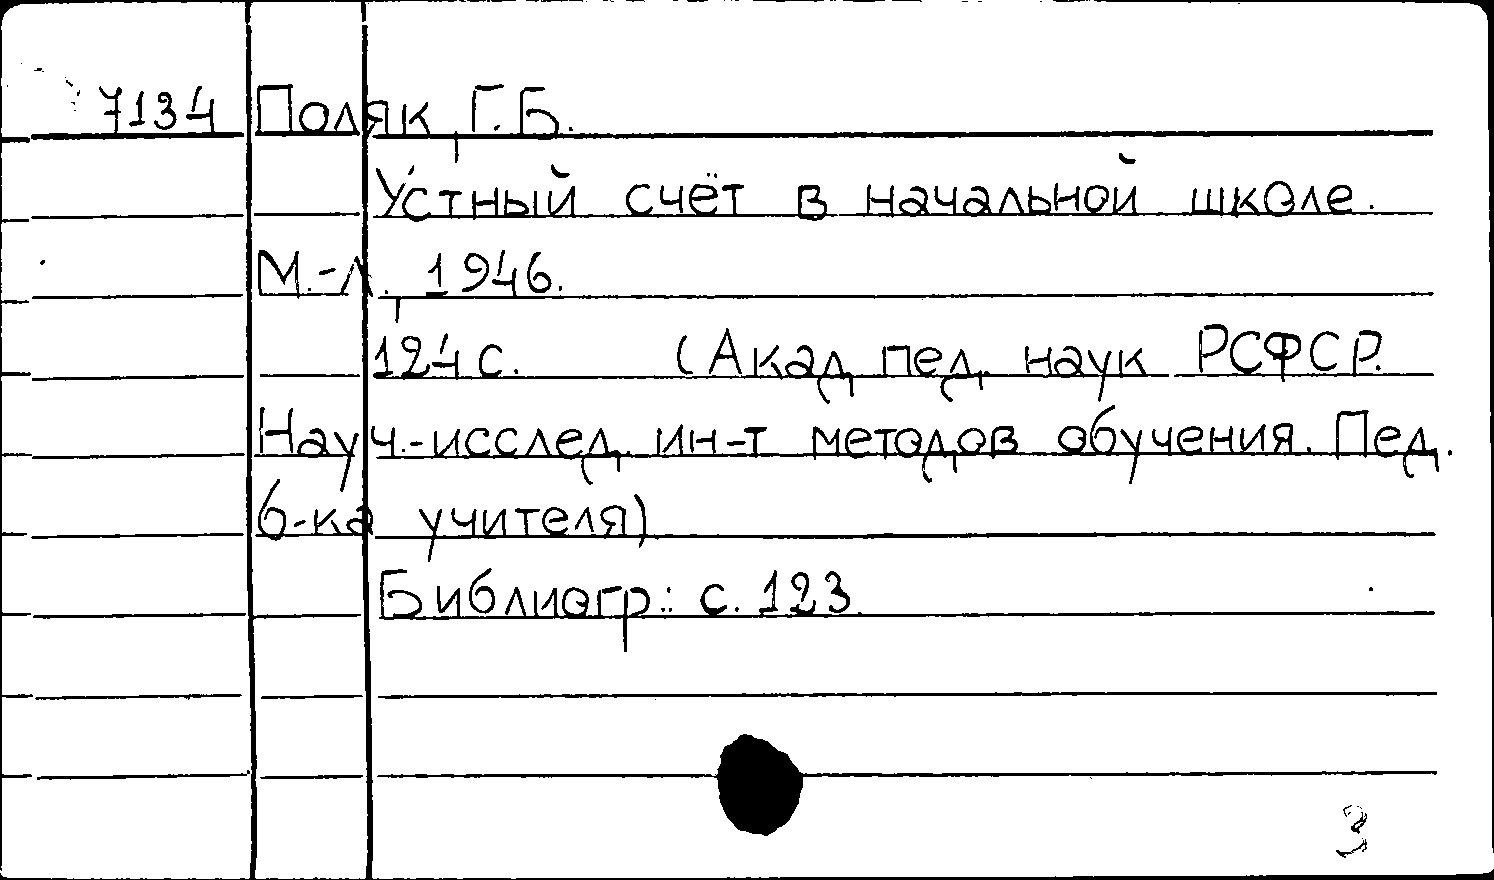 7134 Поляк, Г.Б.
Устный счёт в начальной школе.
М.-Л., 1946.
124 с. (Акад. пед. наук РСФСР.
Науч.-исслед. ин-т методов обучения. Пед.
б-ка учителя)
Библиогр.: с. 123.
3